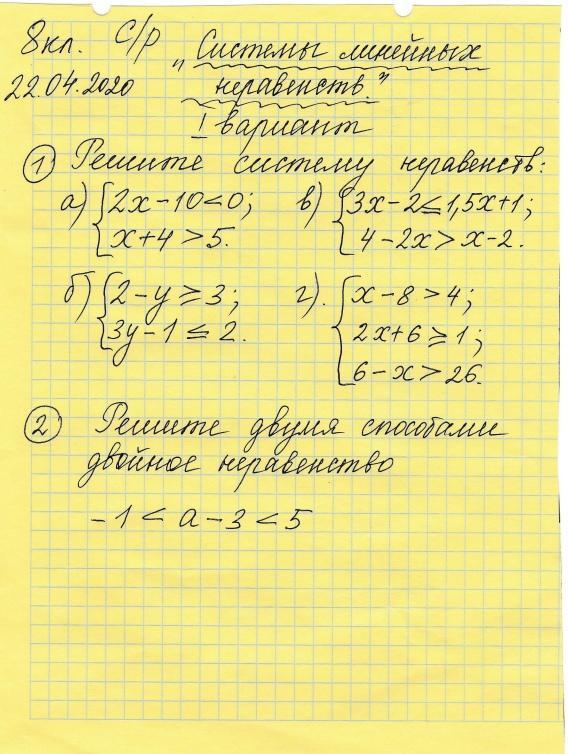 8кл. С/р „Системы линейных
22.04.2020 неравенств."
I вариант
① Решите систему неравенств:
а) { 2x-10<0; в) { 3x-2≤1,5x+1;
x+4>5. 4-2x>x-2.
б) { 2-y≥3; г). { x-8>4;
3y-1≤2. 2x+6≥1;
6-x>26.
② Решите двумя способами
двойное неравенство
-1<a-3<5